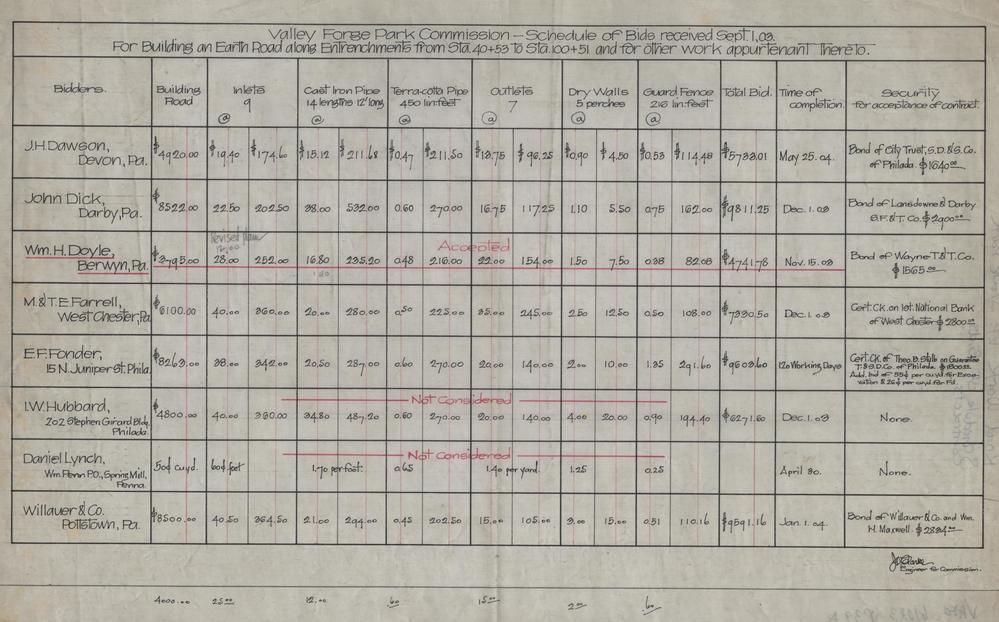 Valley Forge Park Commission — Schedule of Bids received Sept. 1, 03.
For Building an Earth Road along Entrenchments from Sta. 40+53 to Sta. 100+51 and for other work appurtenant Thereto.
Bidders. Building Road Inlets 9 @ Cast Iron Pipe 14 lengths 12' long @ Terra-cotta Pipe 450 lin. feet @ Outlets 7 @ Dry Walls 5 perches @ Guard Fence 216 lin. feet @ Total Bid. Time of completion. Security for acceptance of contract.
J.H. Dawson, Devon, Pa. $4920.00 $19.40 $174.60 $15.12 $211.68 $0.47 $211.50 $13.75 $96.25 $0.90 $4.50 $0.53 $114.48 $5733.01 May 25.04. Bond of City Trust, S.D. & S. Co. of Philada. $1640.00
John Dick, Darby, Pa. $8522.00 22.50 202.50 38.00 532.00 0.60 270.00 16.75 117.25 1.10 5.50 0.75 162.00 $9811.25 Dec. 1.03 Bond of Lansdowne & Darby S.F. & T. Co. $2900.00
revised plan
Accepted
Wm. H. Doyle, Berwyn, Pa. $3795.00 28.00 252.00 16.80 235.20 0.48 216.00 22.00 154.00 1.50 7.50 0.38 82.08 $4741.78 Nov. 15.03 Bond of Wayne T. & T. Co. $1565.00
M. & T.E. Farrell, West Chester, Pa. $6100.00 40.00 360.00 20.00 280.00 0.50 225.00 35.00 245.00 2.50 12.50 0.50 108.00 $7330.50 Dec. 1.03 Cert. Ck. on 1st. National Bank of West Chester $2800.00
E.F. Fonder, 15 N. Juniper St. Phila. $8263.00 38.00 342.00 20.50 287.00 0.60 270.00 20.00 140.00 2.00 10.00 1.35 291.60 $9603.60 120 Working Days Cert. Ck. of Theo. B. on Guarantee T. & S.D. Co. of Philada. $1800.00 Add. bid of 55¢ per cu. yd. for Excavation & 26¢ per cu. yd. for Fill.
Not Considered
I.W. Hubbard, 202 Stephen Girard Bldg. Philada. $4800.00 40.00 360.00 34.80 487.20 0.60 270.00 20.00 140.00 4.00 20.00 0.90 194.40 $6271.60 Dec. 1.03 None.
Not Considered
Daniel Lynch, Wm. Penn P.O., Spring Mill, Penna. 50¢ cu. yd. 60¢ feet 1.70 per feet. 0.65 1.40 per yard. 1.25 0.25 April 30. None.
Willauer & Co. Pottstown, Pa. $8500.00 40.50 364.50 21.00 294.00 0.45 202.50 15.00 105.00 3.00 15.00 0.51 110.16 $9591.16 Jan. 1.04. Bond of Willauer & Co. and Wm. H. Maxwell. $2884.00
Engineer to Commission.
4000.00 25.00 12.00 .60 15.00 2.00 .60